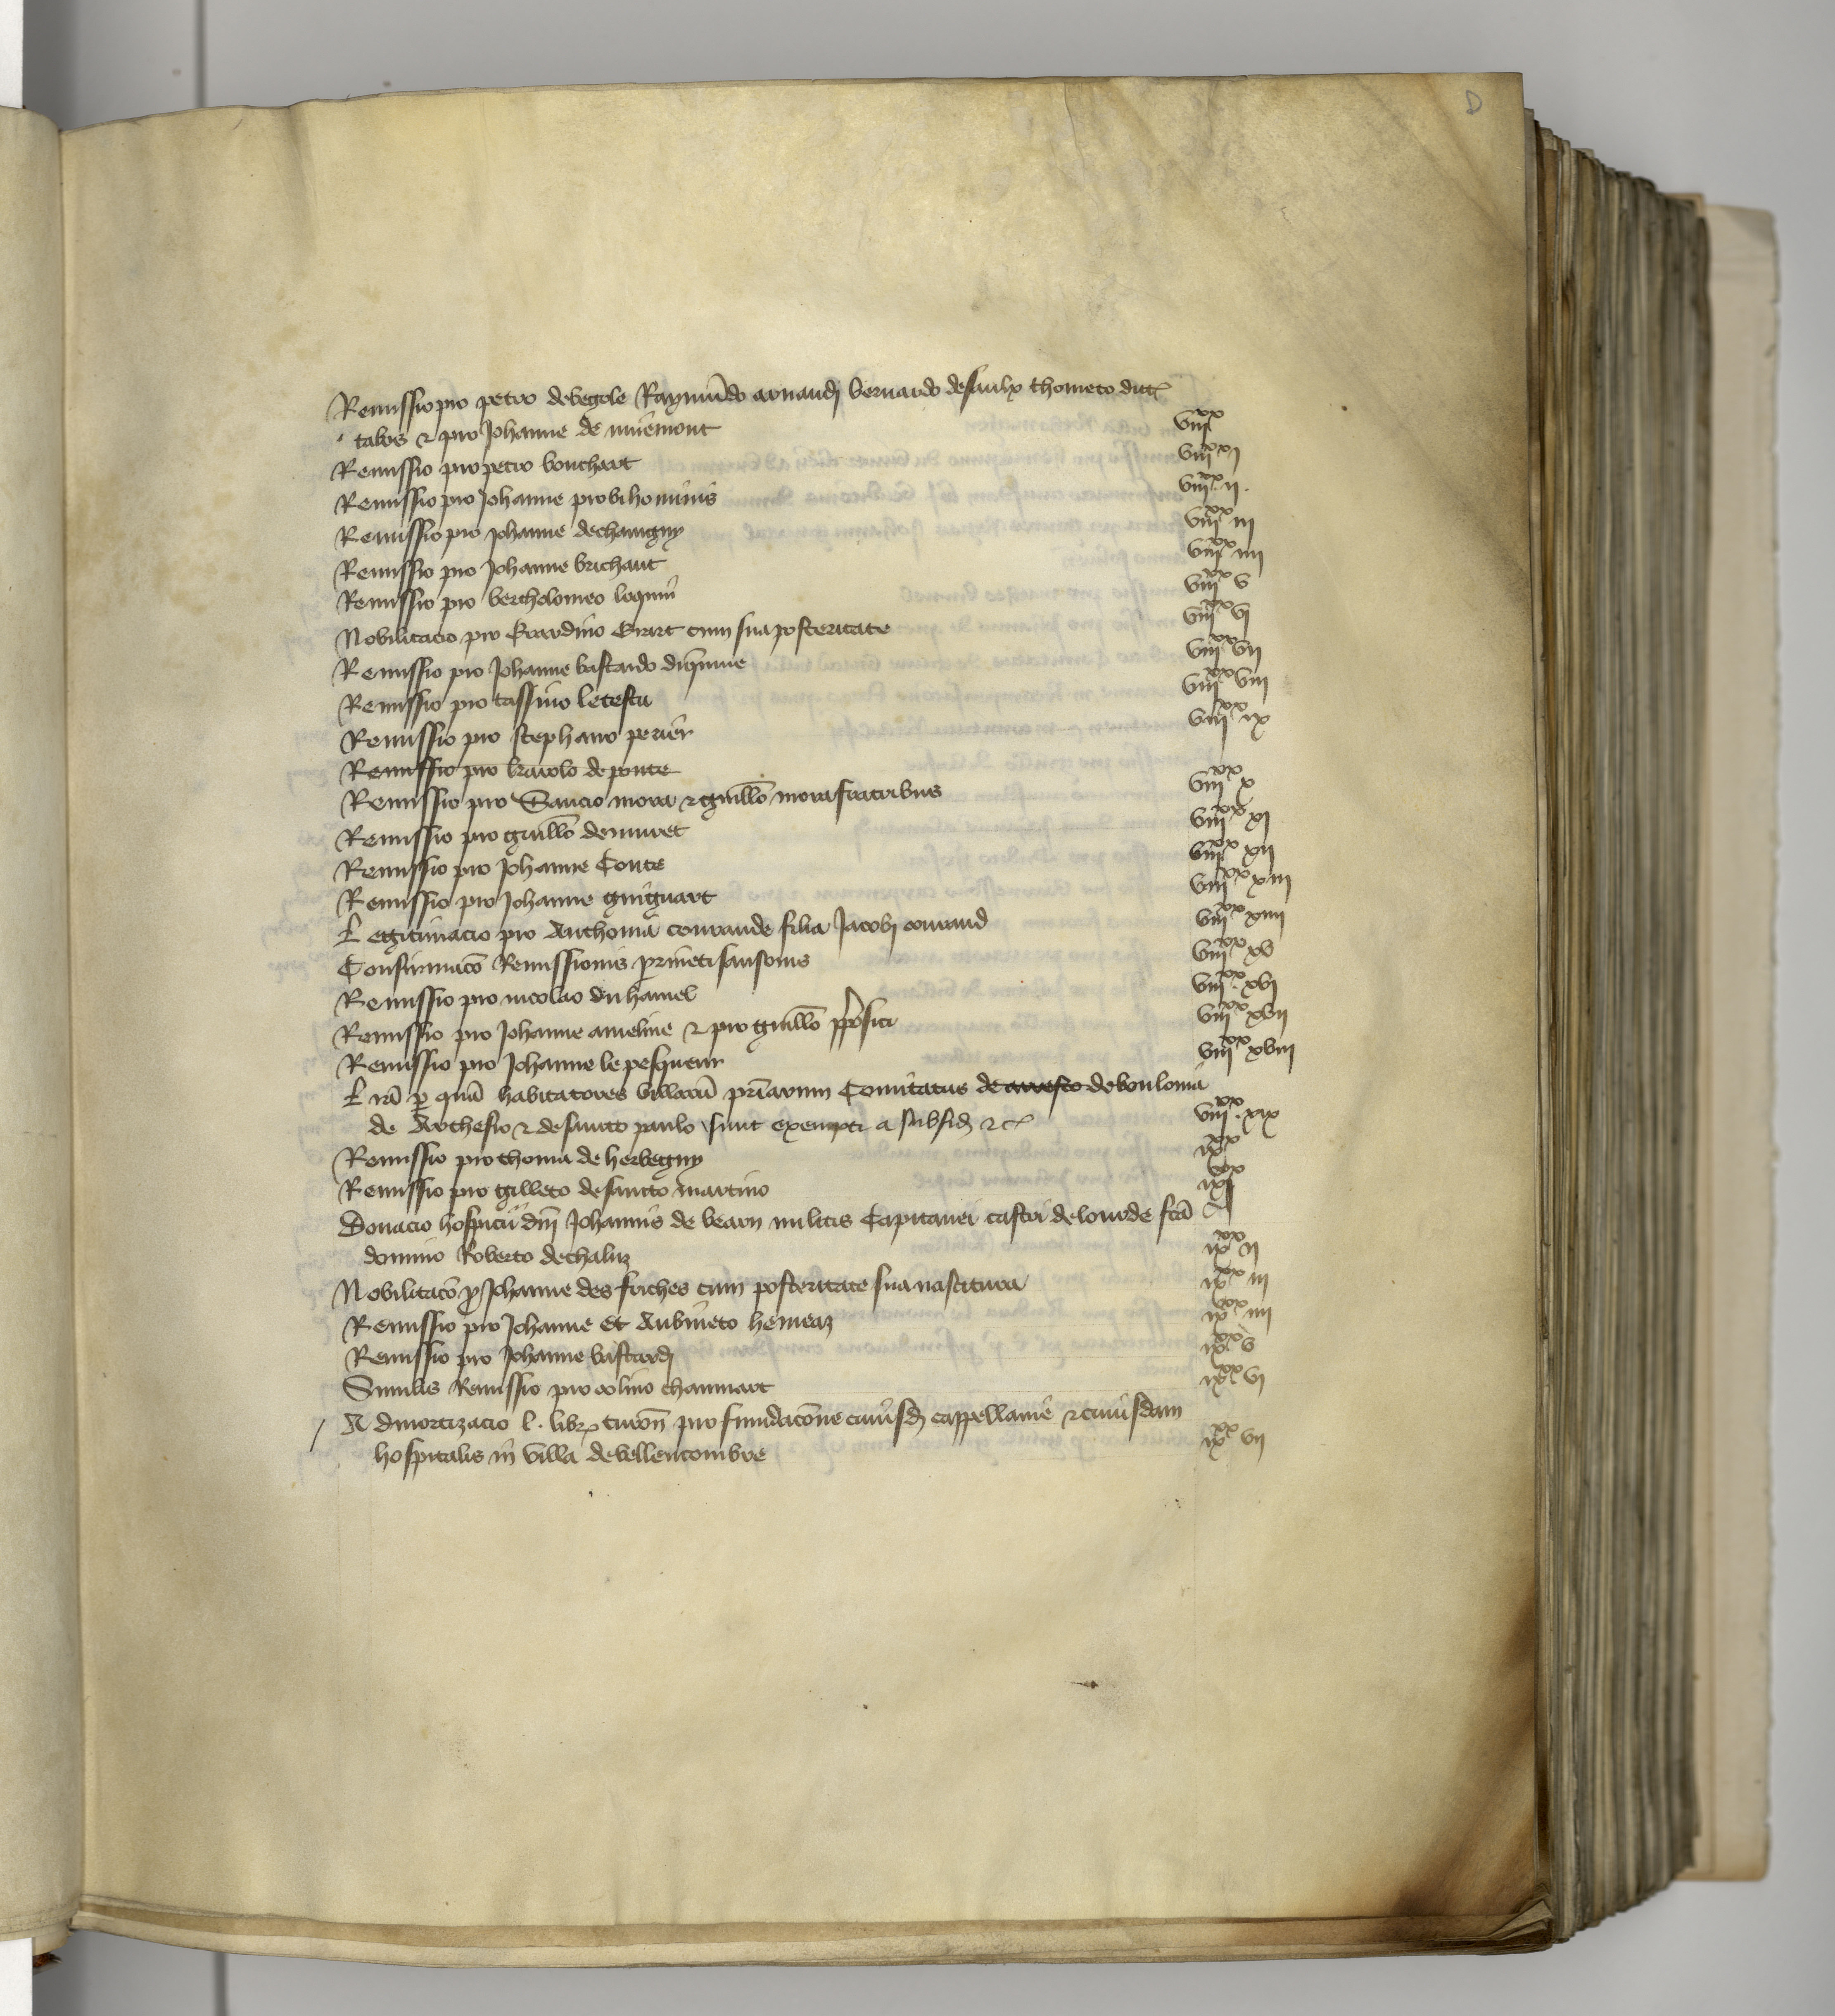 D
Remissio pro petro de vegole Raymũdo arnaudj bernardo de saulx thometo dict
talbs ⁊ pro Johanne de miiemont viiixx
Remissio pro petro bouchart viiixx j
Remissio pro Johanne probi hominis viiixx ij.
Remissio pro Johanne de changy viiixx iij
Remissio pro Johanne brichaut viiixx iiij
Remissio pro bertholomeo viiixx v
Nobilitacio pro Erardino Erart cum sua posteritate viiixx vj
Remissio pro Johanne bastardo viiixx vij
Remissio pro tassino letestu viiixx viij
Remissio pro stephano perier viiixx ix
Remissio pro de ponte
Remissio pro Sancio mora ⁊ guillō mora fratribus viiixx x
Remissio pro guillō demuret viiixx xj
Remissio pro Johanne Conte viiixx xij
Remissio pro Johanne guiguart viiixx xiij
Legitimacio pro Anthonia conrande filia Jacobj conrand viiixx xiiij
Confirmacō Remissionis perrineti sansonis viiixx xv
Remissio pro nicolao du hamel viiixx xvj
Remissio pro Johanne ameline ⁊ pro guillō ppositi viiixx xvij
Remissio pro Johanne le pesqueur viiixx xviij
Lrā p quā habitatores villarū priarum Comitatus de arresto de boulonia
de Arthesio ⁊ de sancto paulo sunt exempti a subsid ⁊c viiixx xix
Remissio pro thoma de herbegny ixxx
Remissio pro gilleto de sancto martino ixxx j
Donacio hospicii dnī Johannis de bearn militis Capitanei castri de lourde fctā
domino Roberto de chaluz ixxx ij
Nobilitacō p Johanne des friches cum posteritate sua nascitura ixxx iij
Remissio pro Johanne et Aubineto hemeaz ixxx iiij
Remissio pro Johanne bastardj ixxx v
Similis Remissio pro colino chaumart ixxx vj
Admortizacio l. libr turoñ pro fundacōne cuiusdj cappellanie ⁊ cuiusdam
hospitalis in villa de bellencombre ixxx vij